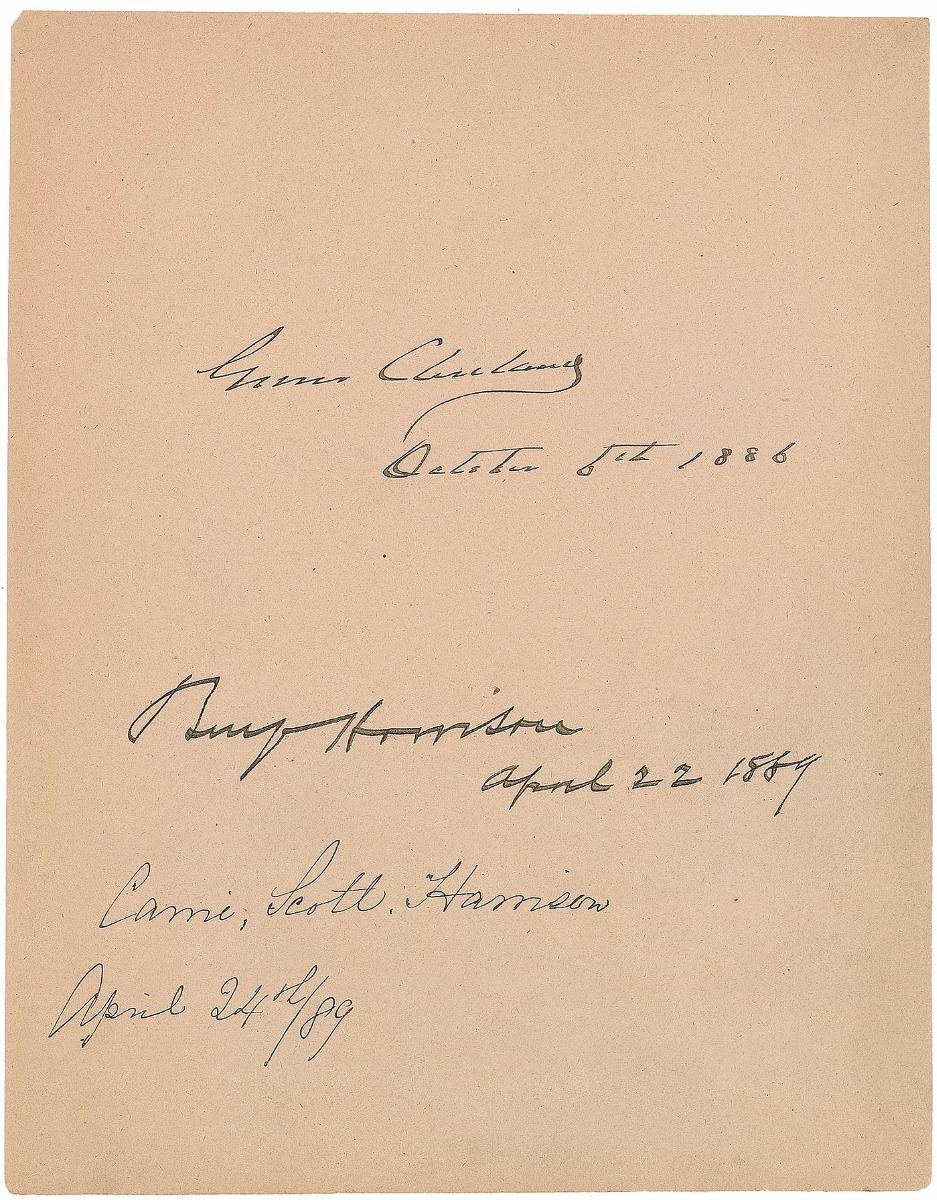 Grover Cleveland
October 6th 1886
Benj Harrison
April 22 1889
Carrie, Scott. Harrison
April 24th/89